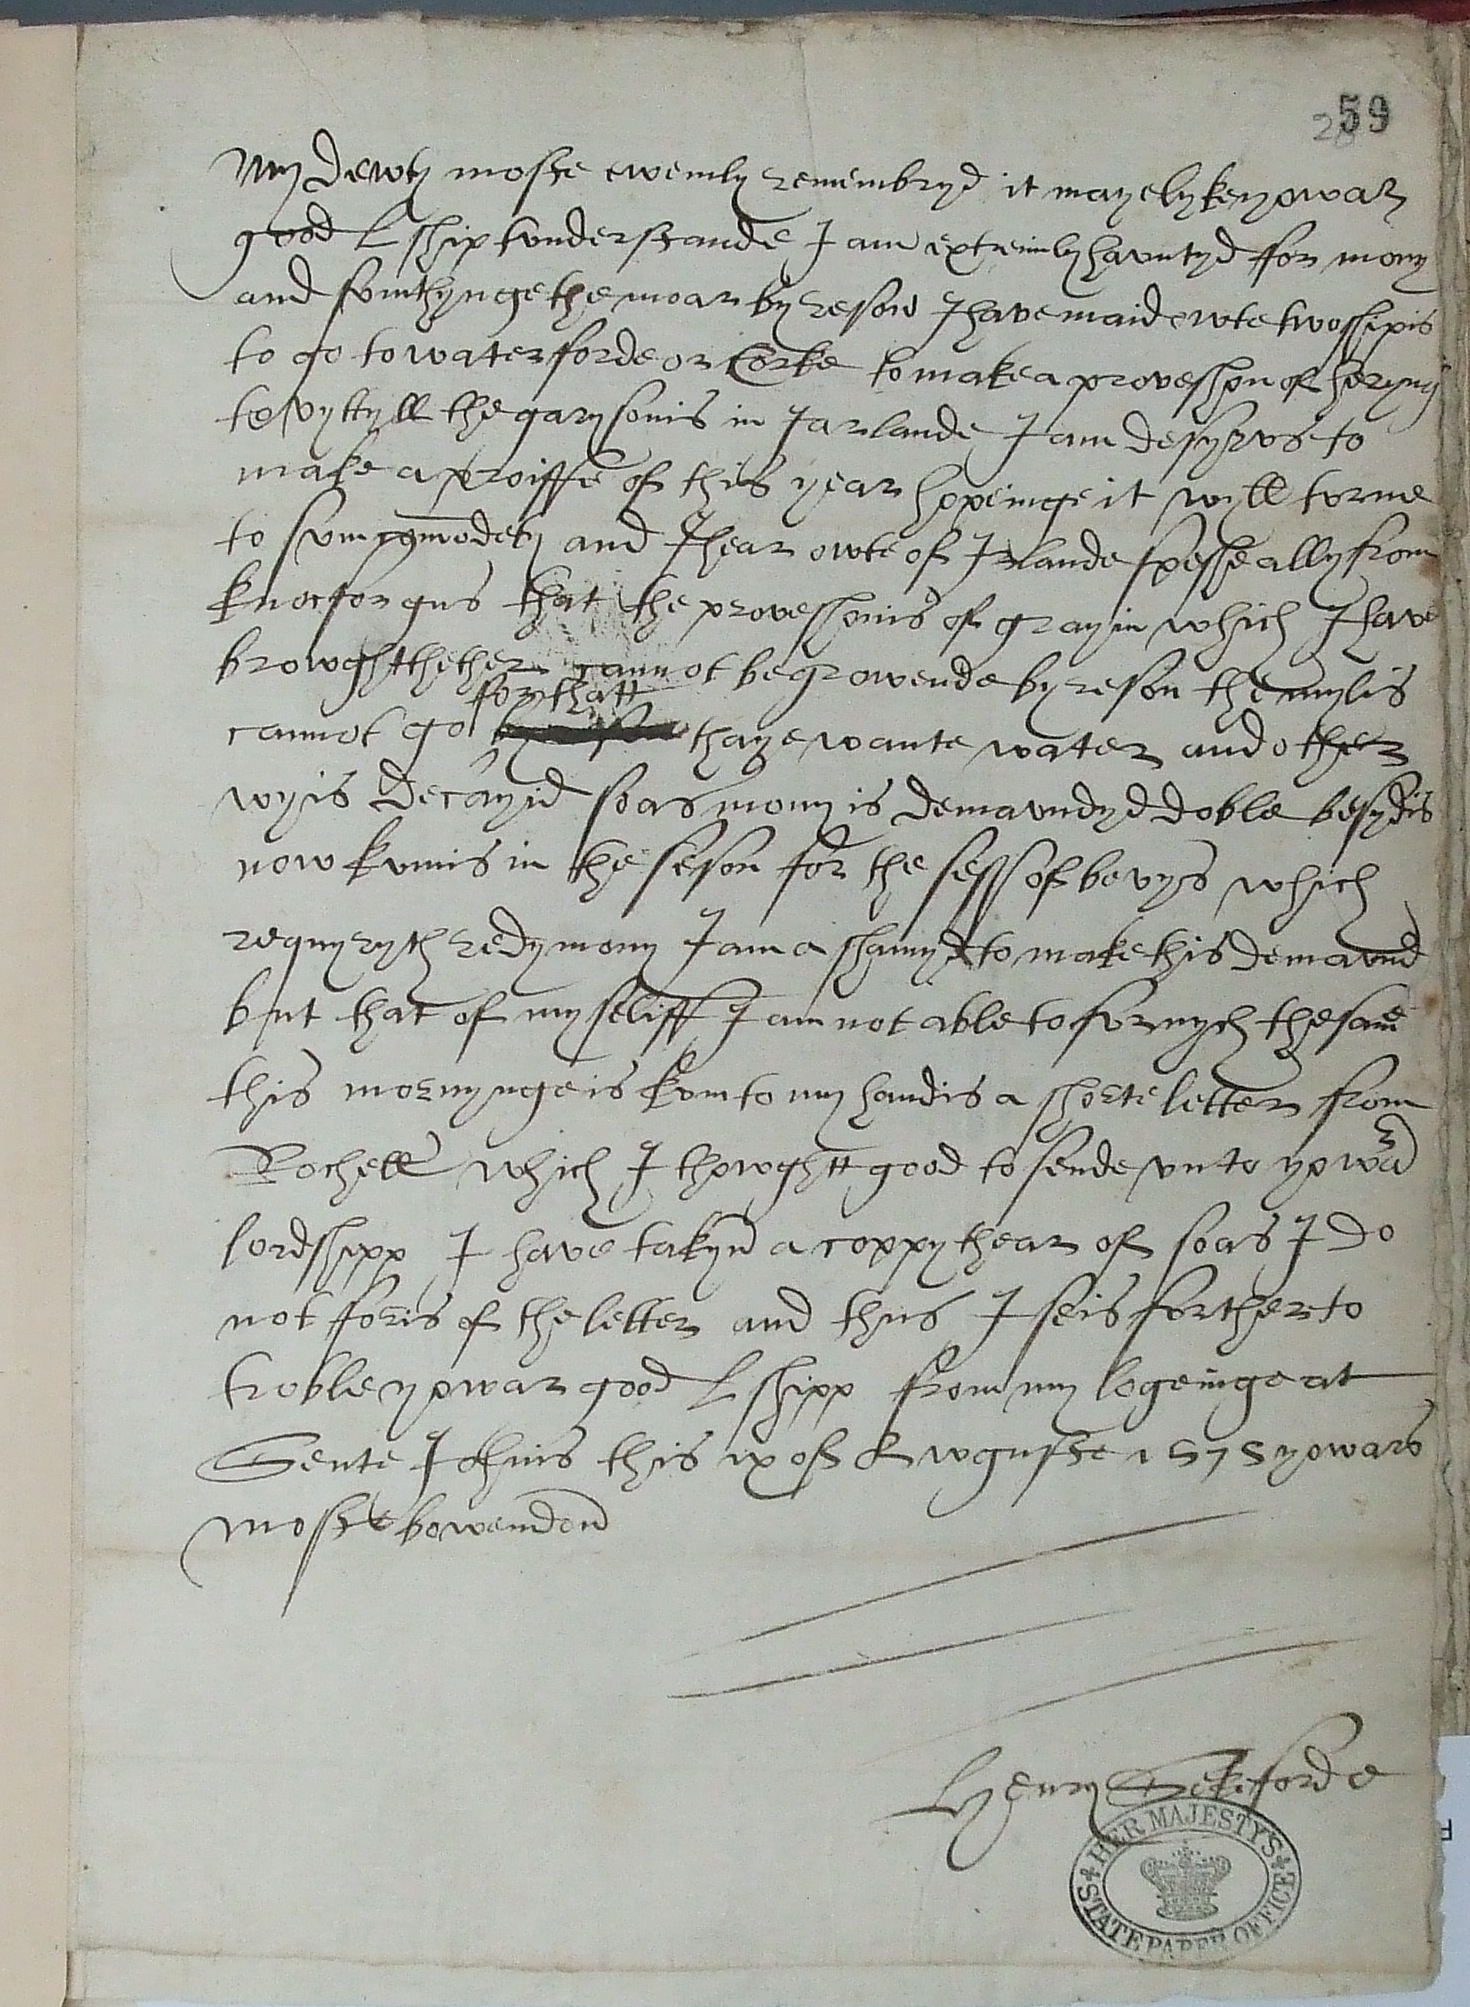 59
My dewty moste ewemly remembryd it maye lyke yowar
good Lship tunderstande I am extreimly havntyd for mony
and sumthynge the moar by reson I have maid owte two shipis
to go to waterforde or Corke to make a proveshon of hering
to vyttyll the garysonis in Iarlande I am desyrus to
make a proiffe of this year hopeinge it wyll torne
to sum comodety and I hear owte of Irlande spesheally from
knocforgus that the proveshonis of grayin which I have
browght thether cannot be growende by reson the mylis
cannot go for thatt thaye wante water and other
wyis decayid so as mony is demavndyd doble besydis
now kumis in the seson for the sess of bevys which
requyryth redy mony I am ashamyd to make this demavnd
but that of my seliff I am not able to furnych the same
this mornynge is kum to my handis a shorte letter from
Rochell which I thowghtt good to sende vnto yowar
lordshipp I have takyn a coppy thear of so as I do
not foris of the letter and thus I seis forther to
troble yowar good Lshipp from my logeinge at
Sente Ihonis this ix of Awguste 1575 yowars
moste bowenden
Henry Sekforde
HER MAJESTY'S STATE PAPER OFFICE